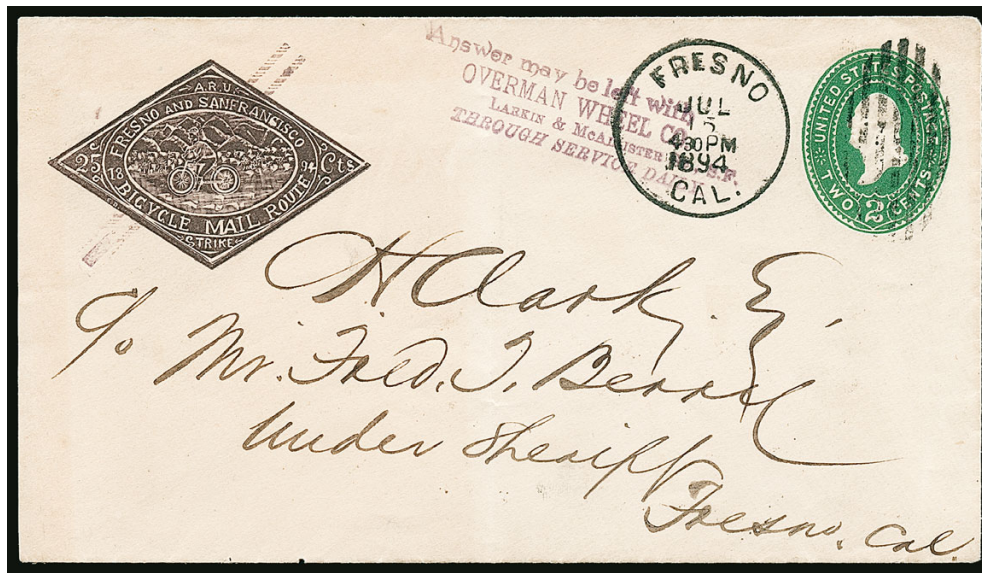 A.R.U.
FRESNO AND SAN FRANCISCO
25 Cts
18 94
BICYCLE MAIL ROUTE
STRIKE
Answer may be left with
OVERMAN WHEEL CO.
LARKIN & MCALLISTER S.F.
THROUGH SERVICE DAILY
FRESNO
JUL
5
430PM
1894
CAL.
UNITED STATES POSTAGE
TWO 2 CENTS
H Clark. E.
c/o Mr. Fred. T. Berry
Under Sheriff
Fresno. Cal.